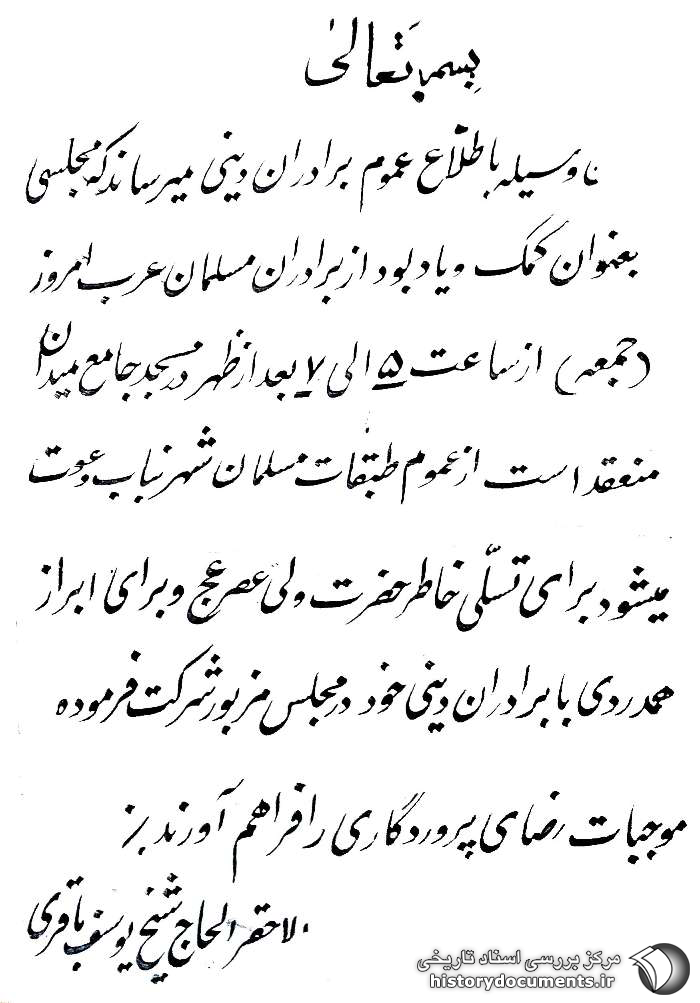 بسمه تعالی
باوسیله باطلاع عموم برادران دینی میرساند که مجلسی
بعنوان کمک و یادبود از برادران مسلمان عرب امروز
(جمعه) از ساعت ۵ الی ۷ بعد از ظهر در مسجد جامع میدان
منعقد است از عموم طبقات مسلمان شهر دعوت
میشود برای تسلّی خاطر حضرت ولی عصر عج و برای ابراز
همدردی با برادران دینی خود در مجلس مزبور شرکت فرموده
موجبات رضای پروردگاری را فراهم آورند
الاحقر الحاج شیخ یوسف باقری
مرکز بررسی اسناد تاریخی
historydocuments.ir